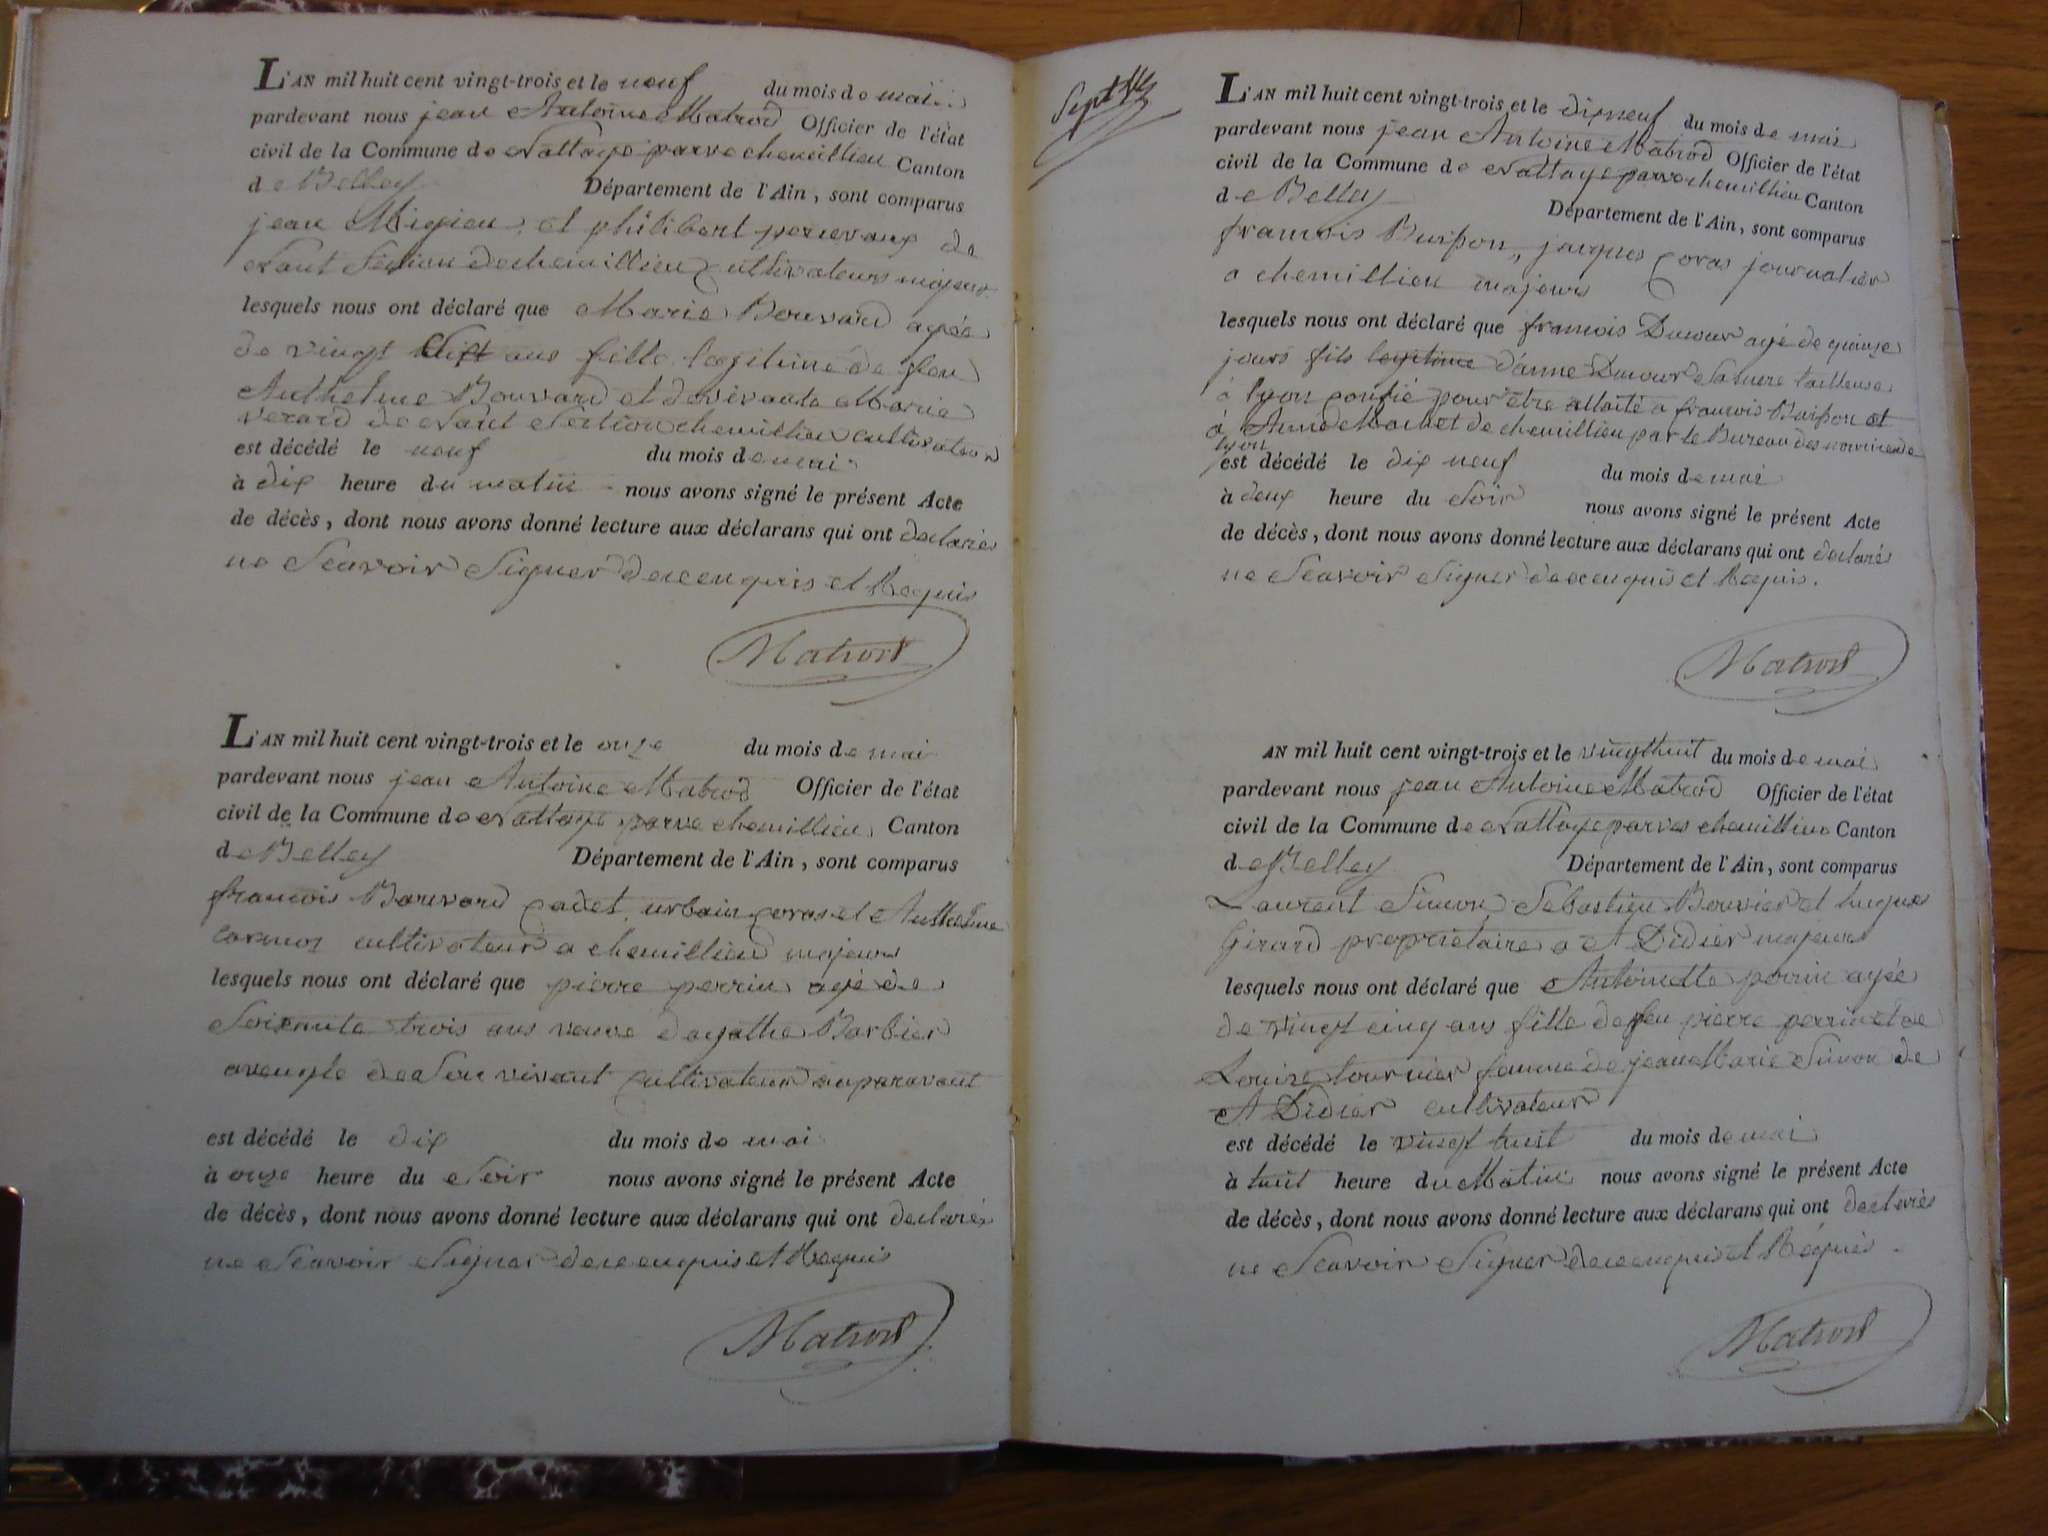 L'AN mil huit cent vingt-trois et le neuf du mois de mai
pardevant nous jean Antoine Matrod Officier de l'état
civil de la Commune de Nattage parve chemillieu Canton
de Belley Département de l'Ain, sont comparus
jean Migieu et philibert perrevaux de
Nant Section de chemillieu cultivateurs majeurs
lesquels nous ont déclaré que Marie Bouvard agée
de vingt ans fille legitime de feu
Anthelme Bouvard et de vivante Marie
verard de Nant Section chemillieu cultivateur
est décédé le neuf du mois de mai
à dix heure du matin nous avons signé le présent Acte
de décès, dont nous avons donné lecture aux déclarans qui ont declarés
ne Scavoir Signer de ce enquis et Requis
Matrod
L'AN mil huit cent vingt-trois et le onze du mois de mai
pardevant nous jean Antoine Matrod Officier de l'état
civil de la Commune de Nattage parve chemillieu Canton
de Belley Département de l'Ain, sont comparus
francois Bouvard cadet, urbain goras et Anthelme
cultivateur a chemillieu majeurs
lesquels nous ont déclaré que pierre perrin agé de
Soixente trois ans veuve d'agathe Barbier
aveugle de Son vivant cultivateur auparavant
est décédé le dix du mois de mai
à onze heure du Soir nous avons signé le présent Acte
de décès, dont nous avons donné lecture aux déclarans qui ont declarés
ne Scavoir Signer de ce enquis et Requis
Matrod
Sept
L'AN mil huit cent vingt-trois et le dixneuf du mois de mai
pardevant nous jean Antoine Matrod Officier de l'état
civil de la Commune de Nattage parve chemillieu Canton
de Belley Département de l'Ain, sont comparus
francois Buisson, jacques goras journalier
a chemillieu majeurs
lesquels nous ont déclaré que francois Ducour agé de quinze
jours fils legitime d'anne Ducour Sa mere tailleuse
à lyon confié pour être allaité a francois Buisson et
à Anne Mochet de chemillieu par le Bureau des nourrices de
lyon
est décédé le dix neuf du mois de mai
à deux heure du Soir nous avons signé le présent Acte
de décès, dont nous avons donné lecture aux déclarans qui ont declarés
ne Scavoir Signer de ce enquis et Requis.
Matrod
AN mil huit cent vingt-trois et le vingthuit du mois de mai
pardevant nous jean Antoine Matrod Officier de l'état
civil de la Commune de Nattage parves chemillieu Canton
de Belley Département de l'Ain, sont comparus
Laurent Simon, Sebastien Bouvier et hugues
Girard propriétaire a St Didier majeurs
lesquels nous ont déclaré que Antoinette perrin agée
de vingt cinq ans fille de feu pierre perrin et de
Louise tournier femme de jean Marie Simon de
St Didier cultivateur
est décédé le vingt huit du mois de mai
à huit heure du Matin nous avons signé le présent Acte
de décès, dont nous avons donné lecture aux déclarans qui ont declarés
ne Scavoir Signer de ce enquis et Requis.
Matrod